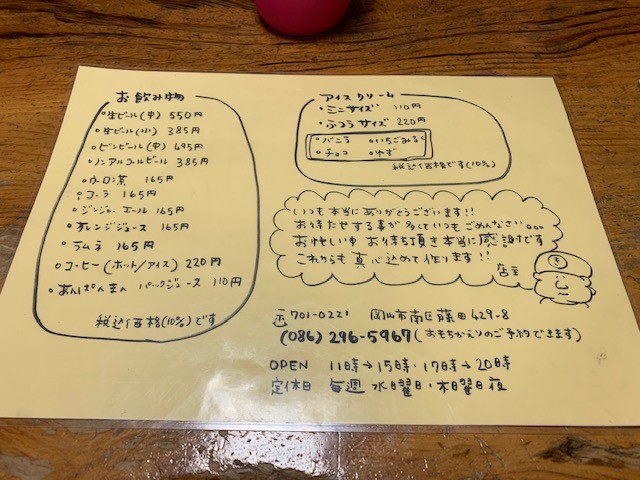 お飲み物
○生ビール(中) 550円
○生ビール(小) 385円
○ビンビール(中) 495円
○ノンアルコールビール 385円
○ウーロン茶 165円
○コーラ 165円
○ジンジャーエール 165円
○オレンジジュース 165円
○ラムネ 165円
○コーヒー(ホット/アイス) 220円
○あんぱんまん パックジュース 110円
税込価格(10%)です
アイスクリーム
・ミニサイズ 110円
・ふつうサイズ 220円
○バニラ ○いちごみるく
○チョコ ○ゆず
税込価格です(10%)
いつも本当にありがとうございます!!
お待たせする事が多くていつもごめんなさい。。。
お忙しい中 お待ち頂き本当に感謝です
これからも真心込めて作ります!!
店主
き
〒701-0221 岡山市南区藤田429-8
(086)296-5967(おもちかえりのご予約できます)
OPEN 11時→15時・17時→20時
定休日 毎週 水曜日・木曜日夜